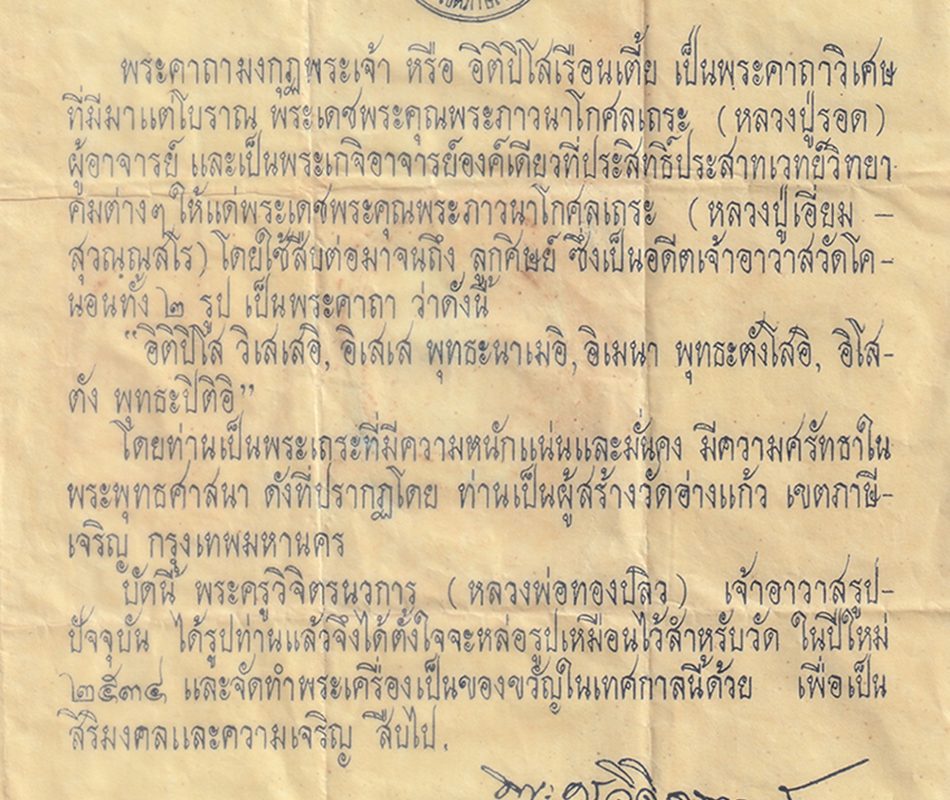 เขตภาษี
พระคาถามงกุฎพระเจ้า หรือ อิติปิโสเรือนเตี้ย เป็นพระคาถาวิเศษ
ที่มีมาแต่โบราณ พระเดชพระคุณพระภาวนาโกศลเถระ (หลวงปู่รอด)
ผู้อาจารย์ และเป็นพระเกจิอาจารย์องค์เดียวที่ประสิทธิ์ประสาทเวทย์วิทยา
คมต่างๆ ให้แด่พระเดชพระคุณพระภาวนาโกศลเถระ (หลวงปู่เอี่ยม –
สุวณฺณสโร) โดยใช้สืบต่อมาจนถึง ลูกศิษย์ ซึ่งเป็นอดีตเจ้าอาวาสวัดโค–
นอนทั้ง ๒ รูป เป็นพระคาถา ว่าดังนี้
“อิติปิโส วิเสเสอิ, อิเสเส พุทธะนาเมอิ, อิเมนา พุทธะตังโสอิ, อิโส–
ตัง พุทธะปิติอิ”
โดยท่านเป็นพระเถระที่มีความหนักแน่นและมั่นคง มีความศรัทธาใน
พระพุทธศาสนา ดังที่ปรากฏโดย ท่านเป็นผู้สร้างวัดอ่างแก้ว เขตภาษี–
เจริญ กรุงเทพมหานคร
บัดนี้ พระครูวิจิตรนวการ (หลวงพ่อทองปลิว) เจ้าอาวาสรูป–
ปัจจุบัน ได้รูปท่านแล้วจึงได้ตั้งใจจะหล่อรูปเหมือนไว้สำหรับวัด ในปีใหม่
๒๕๓๔ และจัดทำพระเครื่องเป็นของขวัญในเทศกาลนี้ด้วย เพื่อเป็น
สิริมงคลและความเจริญ สืบไป.